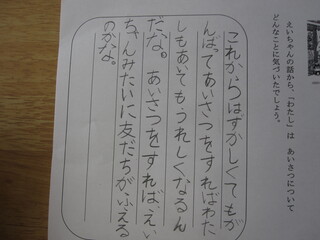 えいちゃんの話から、「わたし」は あいさつについて
どんなことに気づいたでしょう。
これからはずかしくてもが
んばってあいさつをすればわた
しもあいてもうれしくなるん
だな。あいさつをすれば、えい
ちゃんみたいに友だちがふえる
のかな。